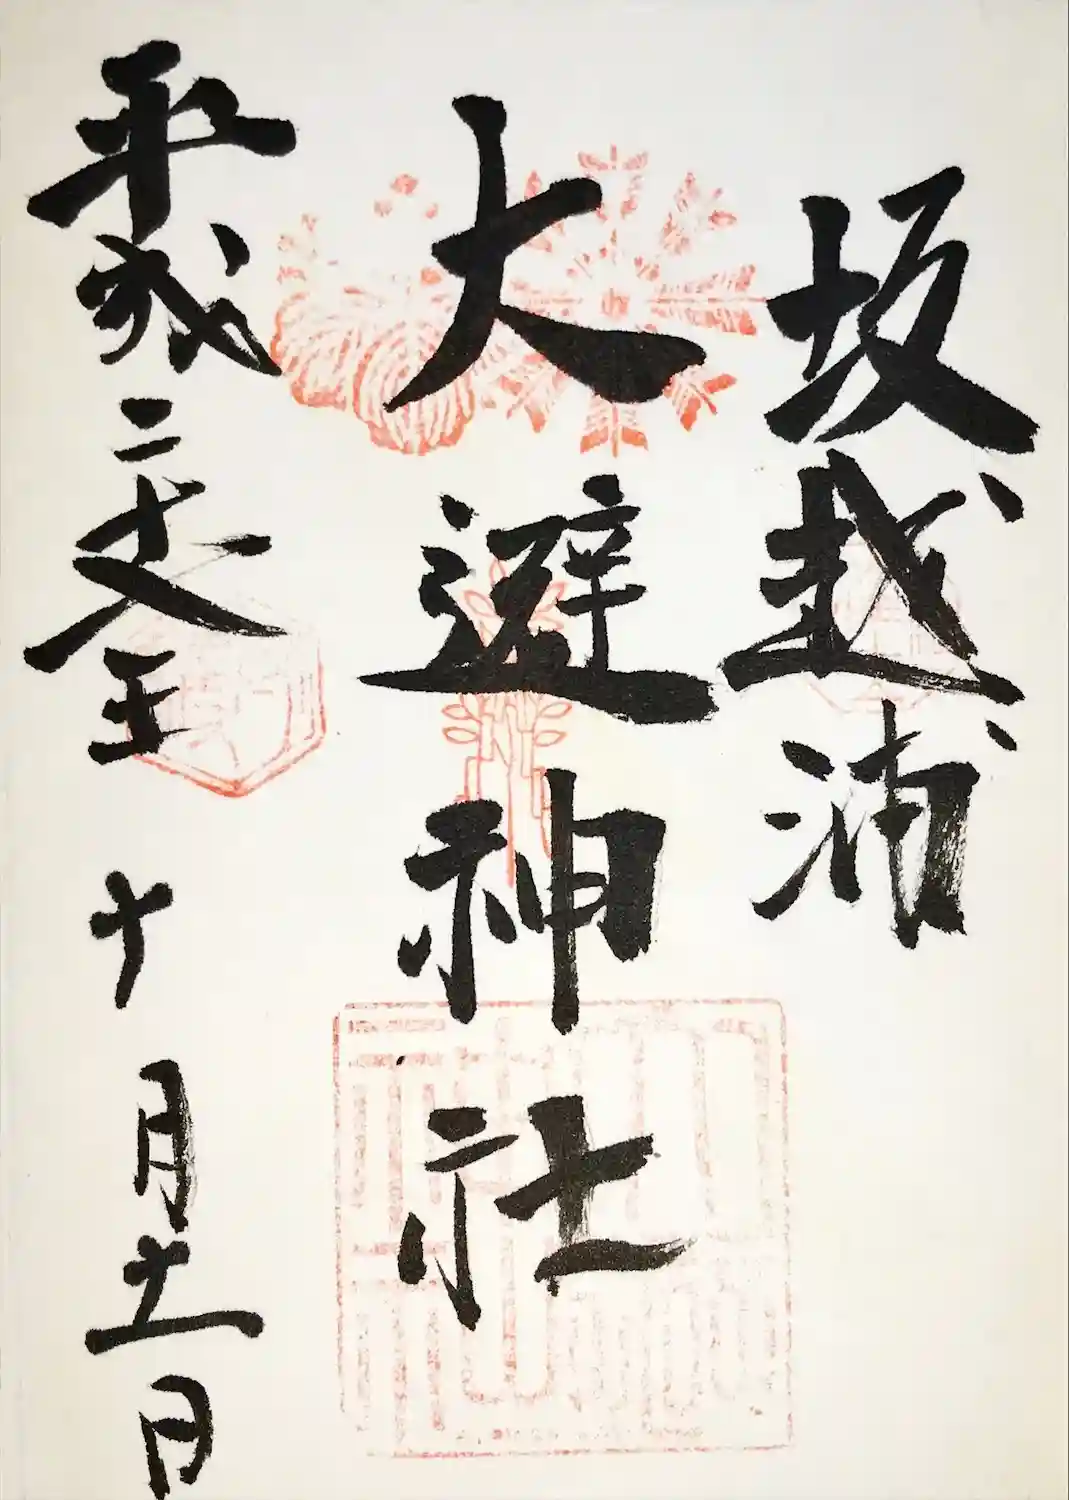 坂越浦
大避神社
平成二十八年十月十一日